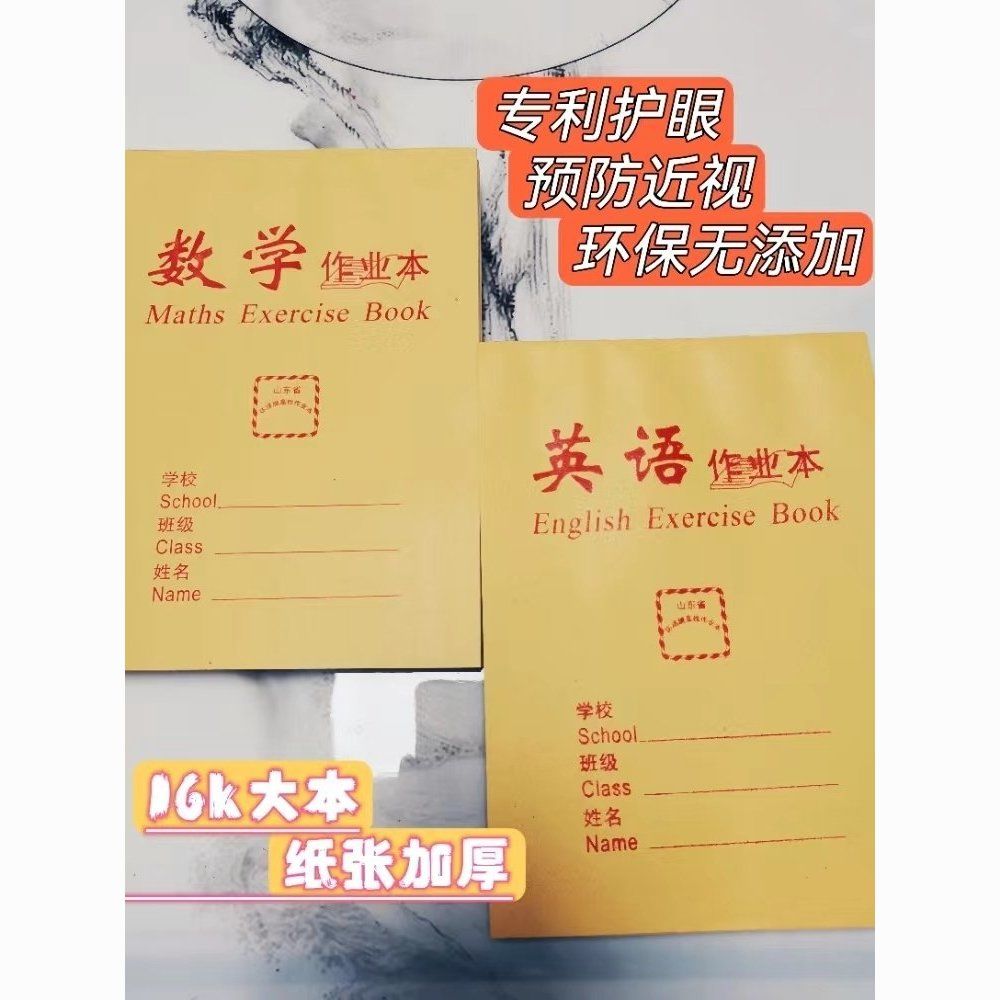 专利护眼
预防近视
环保无添加
数学 作业本
Maths Exercise Book
山东省
学校
School
班级
Class
姓名
Name
英语 作业本
English Exercise Book
山东省
学校
School
班级
Class
姓名
Name
16k大本
纸张加厚